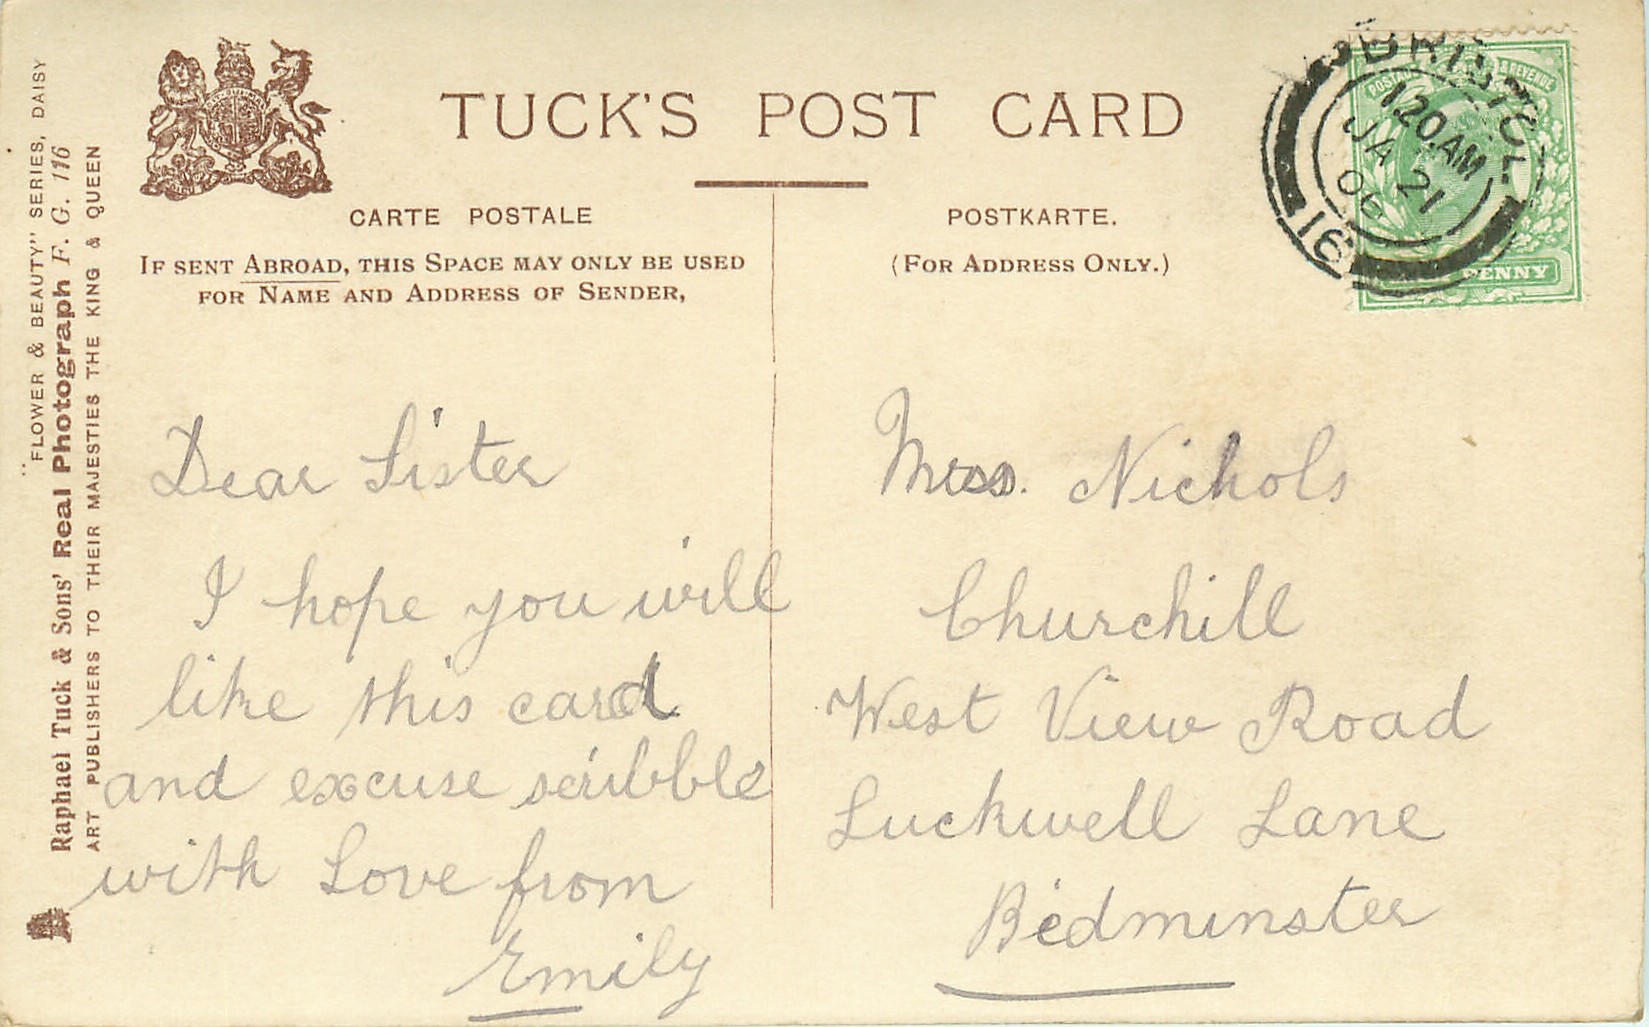 TUCK'S POST CARD
CARTE POSTALE
IF SENT ABROAD, THIS SPACE MAY ONLY BE USED
FOR NAME AND ADDRESS OF SENDER,
POSTKARTE.
(FOR ADDRESS ONLY.)
BRISTOL
12 0. AM
JA 21
06
16
POSTAGE & REVENUE
PENNY
"FLOWER & BEAUTY" SERIES, DAISY
Raphael Tuck & Sons' Real Photograph F. G. 116
ART PUBLISHERS TO THEIR MAJESTIES THE KING & QUEEN
Dear Sister
I hope you will
like this card
and excuse scribble
with Love from
Emily
Miss. Nichols
Churchill
West View Road
Luckwell Lane
Bedminster